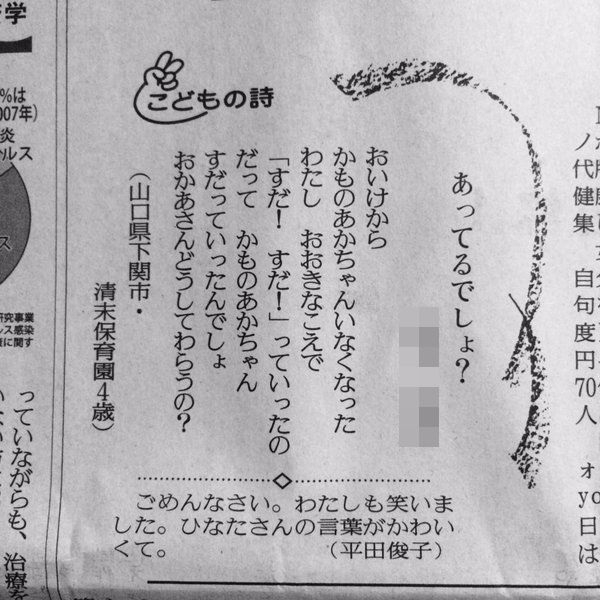 こどもの詩
あってるでしょ?
おいけから
かものあかちゃんいなくなった
わたし おおきなこえで
「すだ! すだ!」っていったの
だって かものあかちゃん
すだっていったんでしょ
おかあさんどうしてわらうの?
(山口県下関市・
清末保育園4歳)
ごめんなさい。わたしも笑いま
した。ひなたさんの言葉がかわい
くて。 (平田俊子)
代
健
集
自
句
度
円
70
人
日
は
学
%は
007年)
炎
ルス
ス
研究事業
ルス感染
に関す
っていながらも、治療を